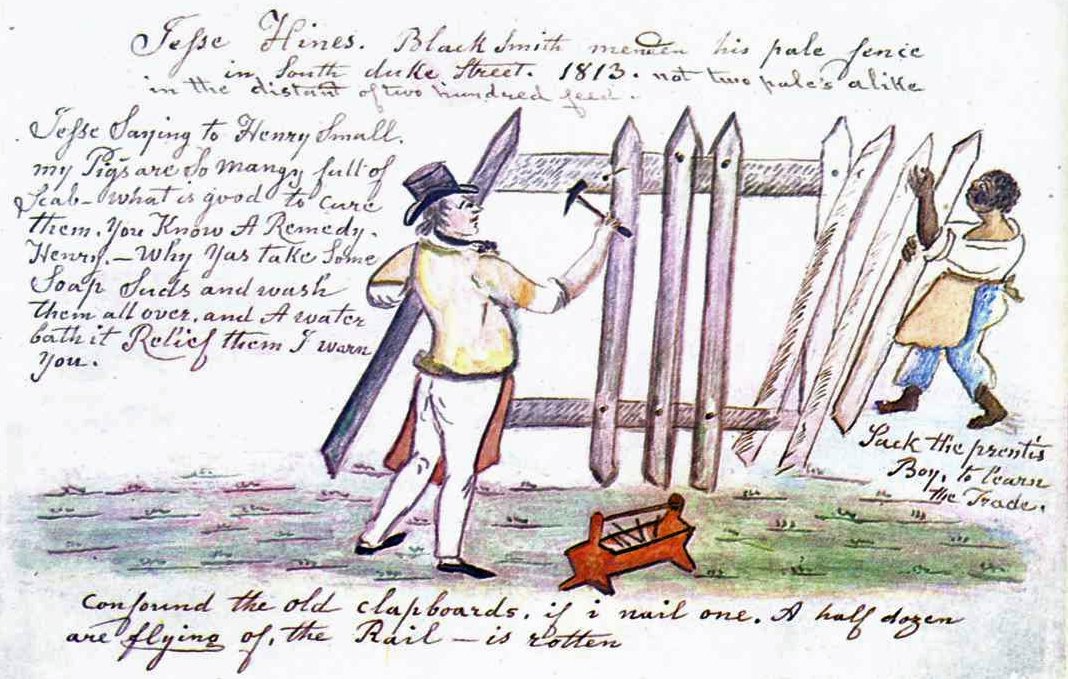 Jesse Hines. Black Smith menden his pale fence
in South duke Street. 1813. not two pale's alike
in the distant of two hundred feed.
Jesse Saying to Henry Small.
my Pigs are So mangy full of
Scab - what is good to Cure
them. You Know A Remedy.
Henry. - Why Yas take Some
Soap Suds and wash
them all over. and A water
bath it Relief them I warn
You.
Jack the prentis
Boy, to learn
the Trade.
Confound the old clapboards, if i nail one. A half dozen
are flying of, the Rail - is rotten